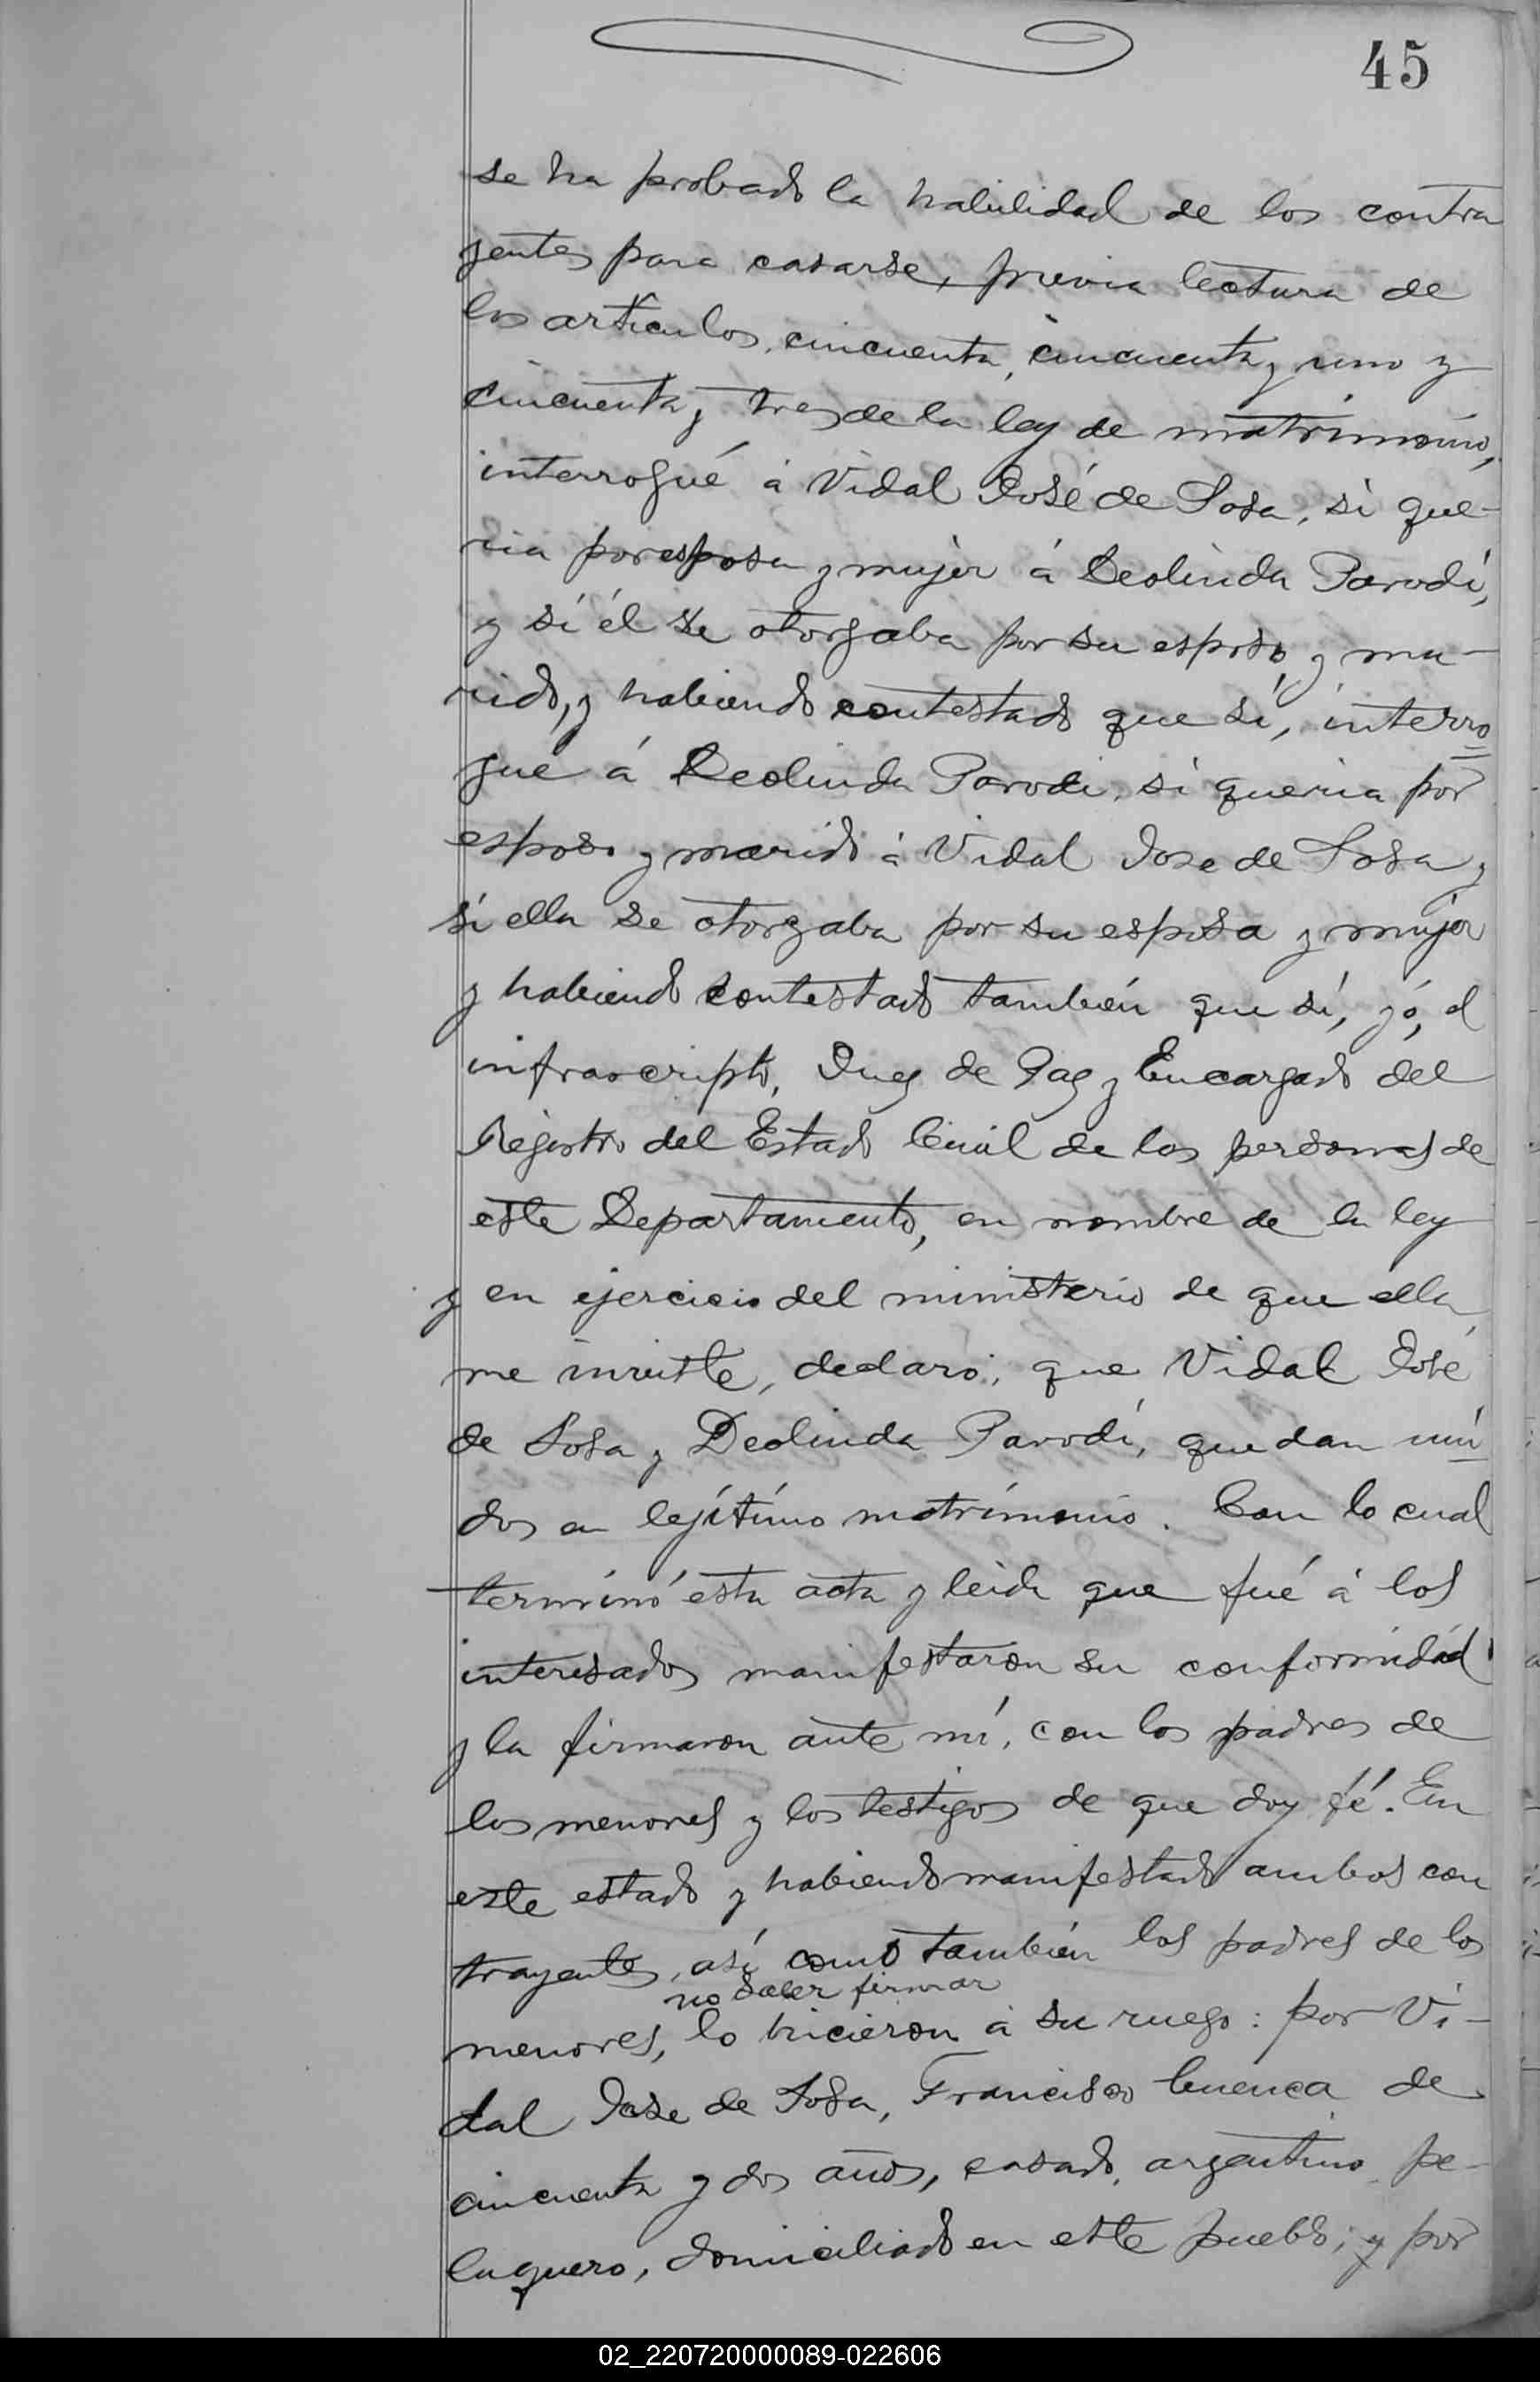 45
se ha probado la habilidad de los contra
yentes para casarse, previa lectura de
los artículos, cincuenta, cincuenta y uno y
cincuenta y tres de la ley de matrimonio,
interrogué á Vidal José de Sosa, si que-
ria por esposa y mujer á Deolinda Parodi,
y si él se otorgaba por su esposo y ma-
rido, y habiendo contestado que sí, interro
gué á Deolinda Parodi, si queria por
esposo y marido á Vidal Jose de Sosa y
si ella se otorgaba por su esposa y mujer
y habiendo contestado también que sí, yó, el
infrascripto, Juez de Paz y Encargado del
Registro del Estado Civil de las personas de
este Departamento, en nombre de la ley
y en ejercicio del ministerio de que ella
me inviste, declaró; que Vidal José
de Sosa y Deolinda Parodi, quedan uni
dos en lejítimo matrimonio. Con lo cual
terminó esta acta y leida que fué á los
interesados manifestaron su conformidad
y la firmaron ante mí, con los padres de
los menores y los testigos de que doy fé. En
este estado y habiendo manifestado ambos con
trayentes, así como también los padres de los
no saber firmar
menores, lo hicieron á su ruego: por Vi-
dal Jose de Sosa, Francisco Cuenca de
cincuenta y dos años, casado, argentino, pe-
luquero, domiciliado en este pueblo; y por
02_220720000089-022606